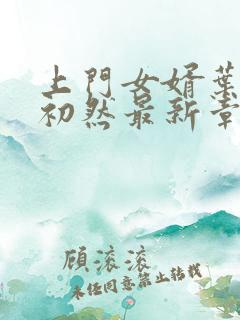 上門女婿葉
初然最新章
顧滾滾
未任同意禁止转载